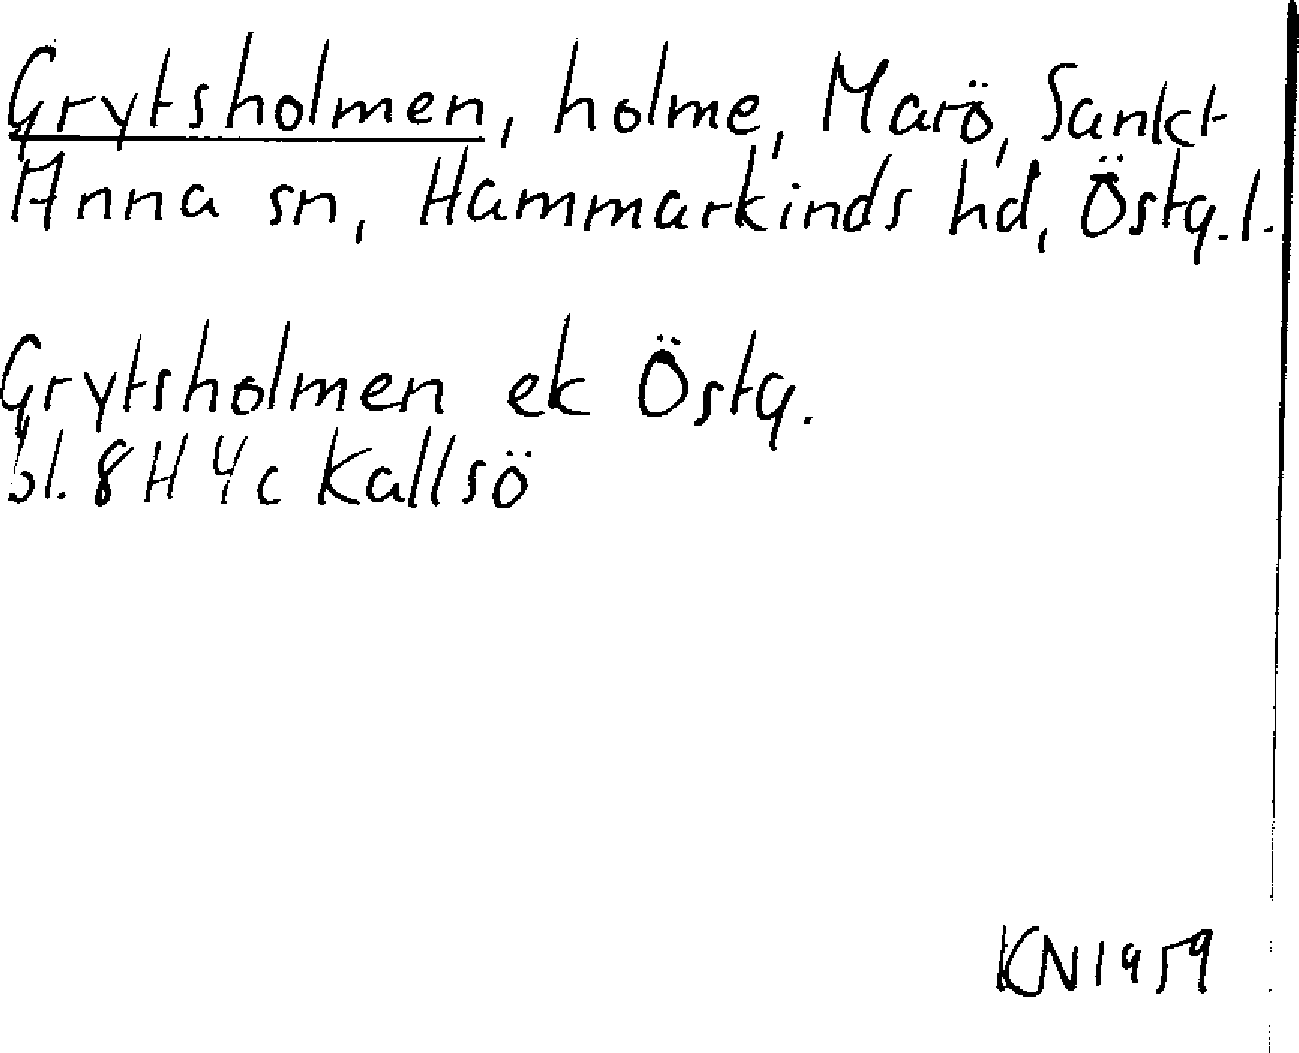 Grytsholmen, holme, Marö, Sankt
Anna sn, Hammarkinds hd, Östg. l.
Grytsholmen ek Östg.
bl. 8H 4c Kallsö
KN 1959